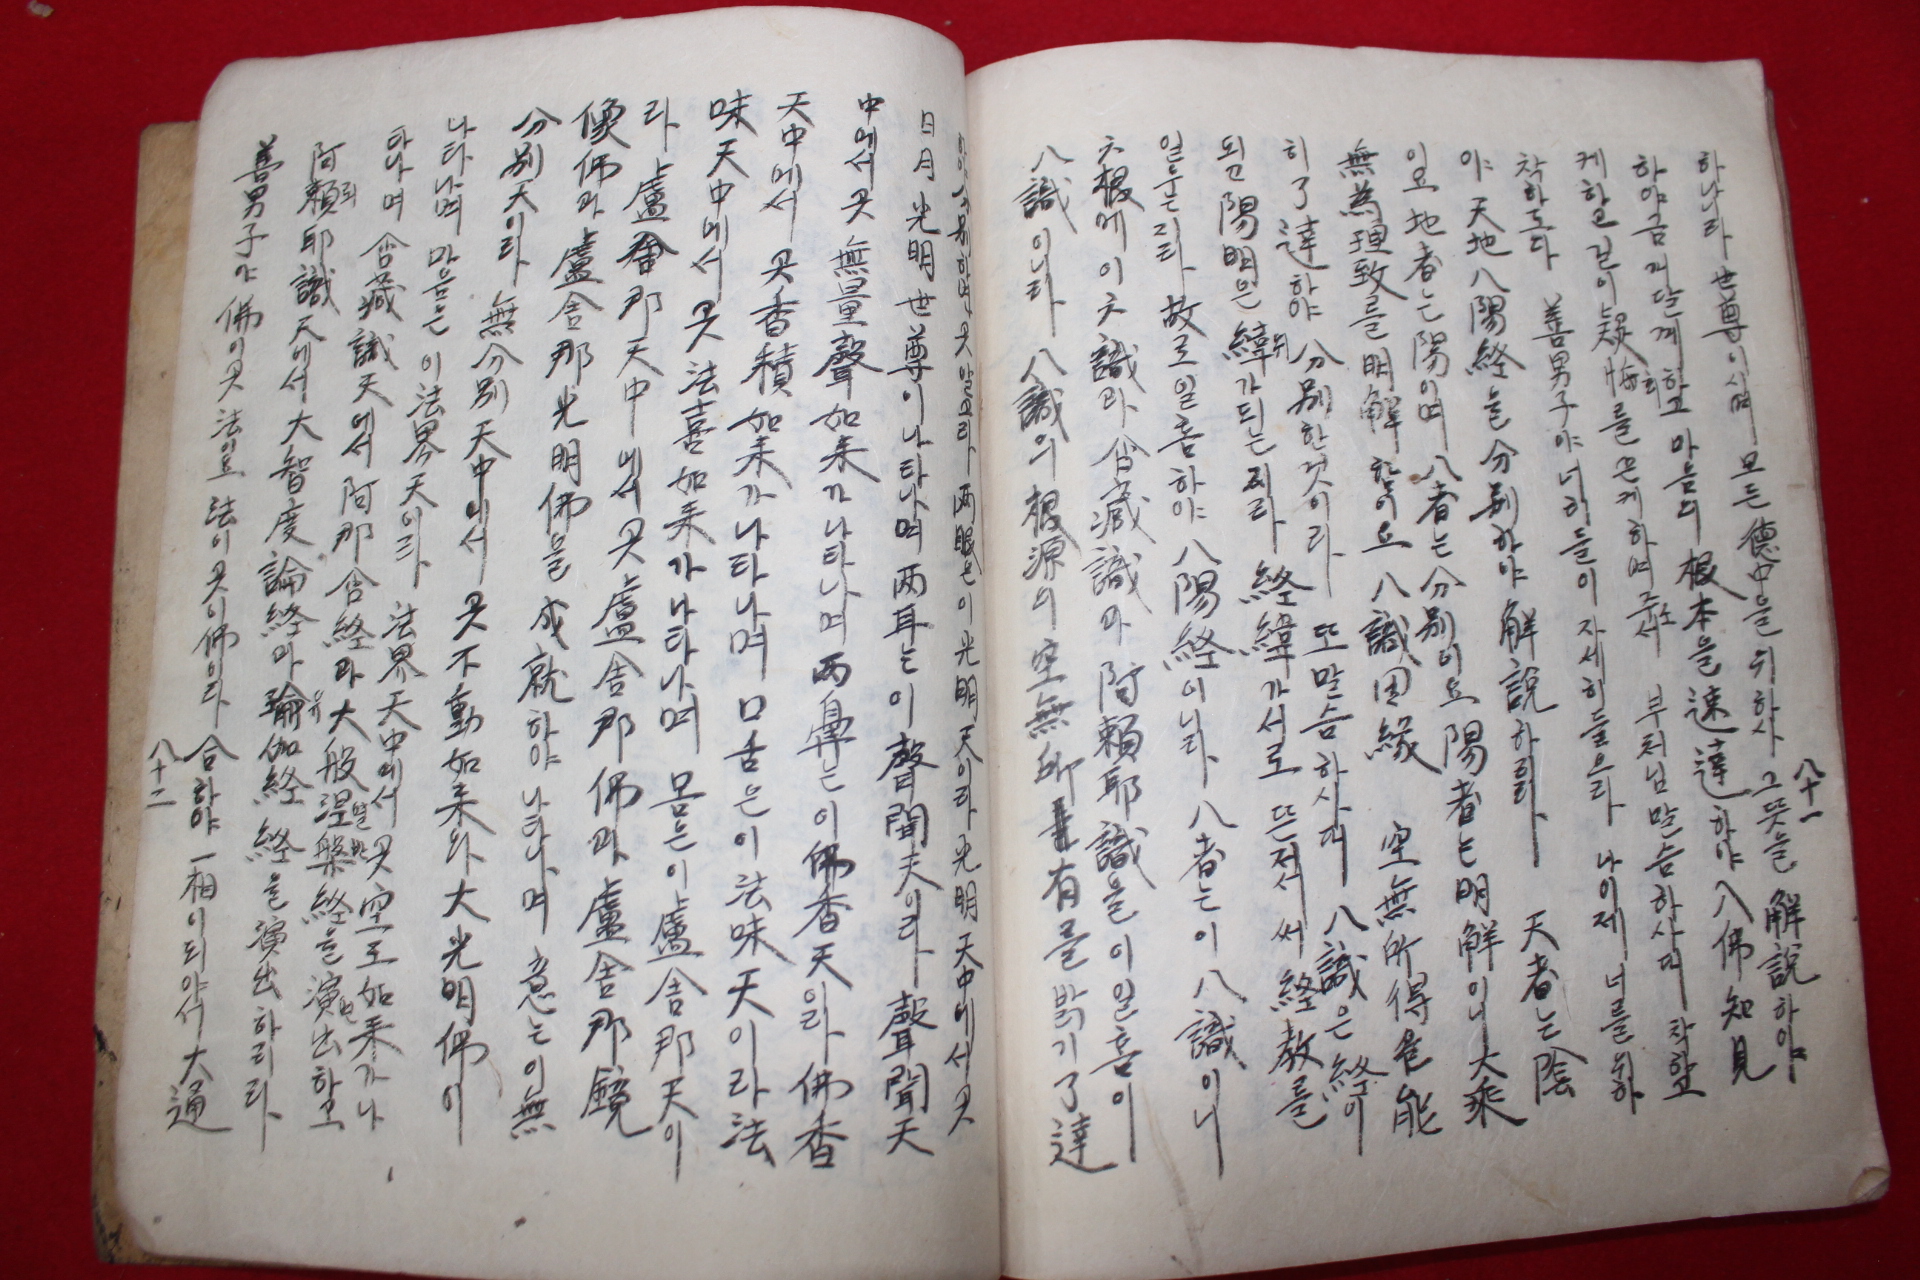 하나라 世尊이시며 모든 德中을 위하사 그뜻을 解說하야
八十一
하야금 깨달께하고 마음의 根本을 速達하야 八佛知見
케하고 길이 疑悔회를 끈케하며 부처님 말슴하사대 착하고
착하도다 善男子야 너히들이 자세히들으라 나이제 너를위하
야 天地八陽経을 分別하야 解說하리라 天者는 陰
이오 地者는 陽이며 八者는 分別이요 陽者는 明解이니 大乘
無為理致를 明解함이요 八識因緣 空無所得을 能
히 了達하야 分別한것이라 또말슴하사대 八識은 経이
되고 陽明은 緯위가되는지라 経緯가서로 뜬저서 써 経教를
일운지라 故로일흠하야 八陽経이니라 八者는이 八識이니
六根에 이六識과 含藏識과 阿賴耶識을 이일흠이
八識이니라 八識의 根源의 空無所有를 밝기 了達
하야 分別하며 곳알고라 兩眼은 이 光明天이라 光明天中에서 곳
日月光明世尊이 나타나며 两耳는이 聲聞天이라 聲聞天
中에서 곳 無量聲如来가 나타나며 两鼻는 이佛香天이라 佛香
天中에서 곳香積如来가 나타나며 口舌은이 法味天이라 法
味天中에서 곳法喜如来가 나타나며 몸은이 盧舎那天이
라 盧舎那天中에서 곳盧舎那佛과 盧舎那鏡
像佛과 盧舎那光明佛을 成就하야 나타나며 意는이無
分別天이라 無分別天中에서 곳不動如来와 大光明佛이
나타나며 마음은 이法界天이라 法界天中에서 곳空王如来가나
타나며 含藏識天에서 阿那含経과 大般涅槃열반経을 演出하고
阿賴뢰耶識天에서 大智度論経과 瑜유伽経 経을 演出하리라
善男子야 佛이곳法이요 法이곳이佛이라 合하야 一相이되야서 大通
八十二